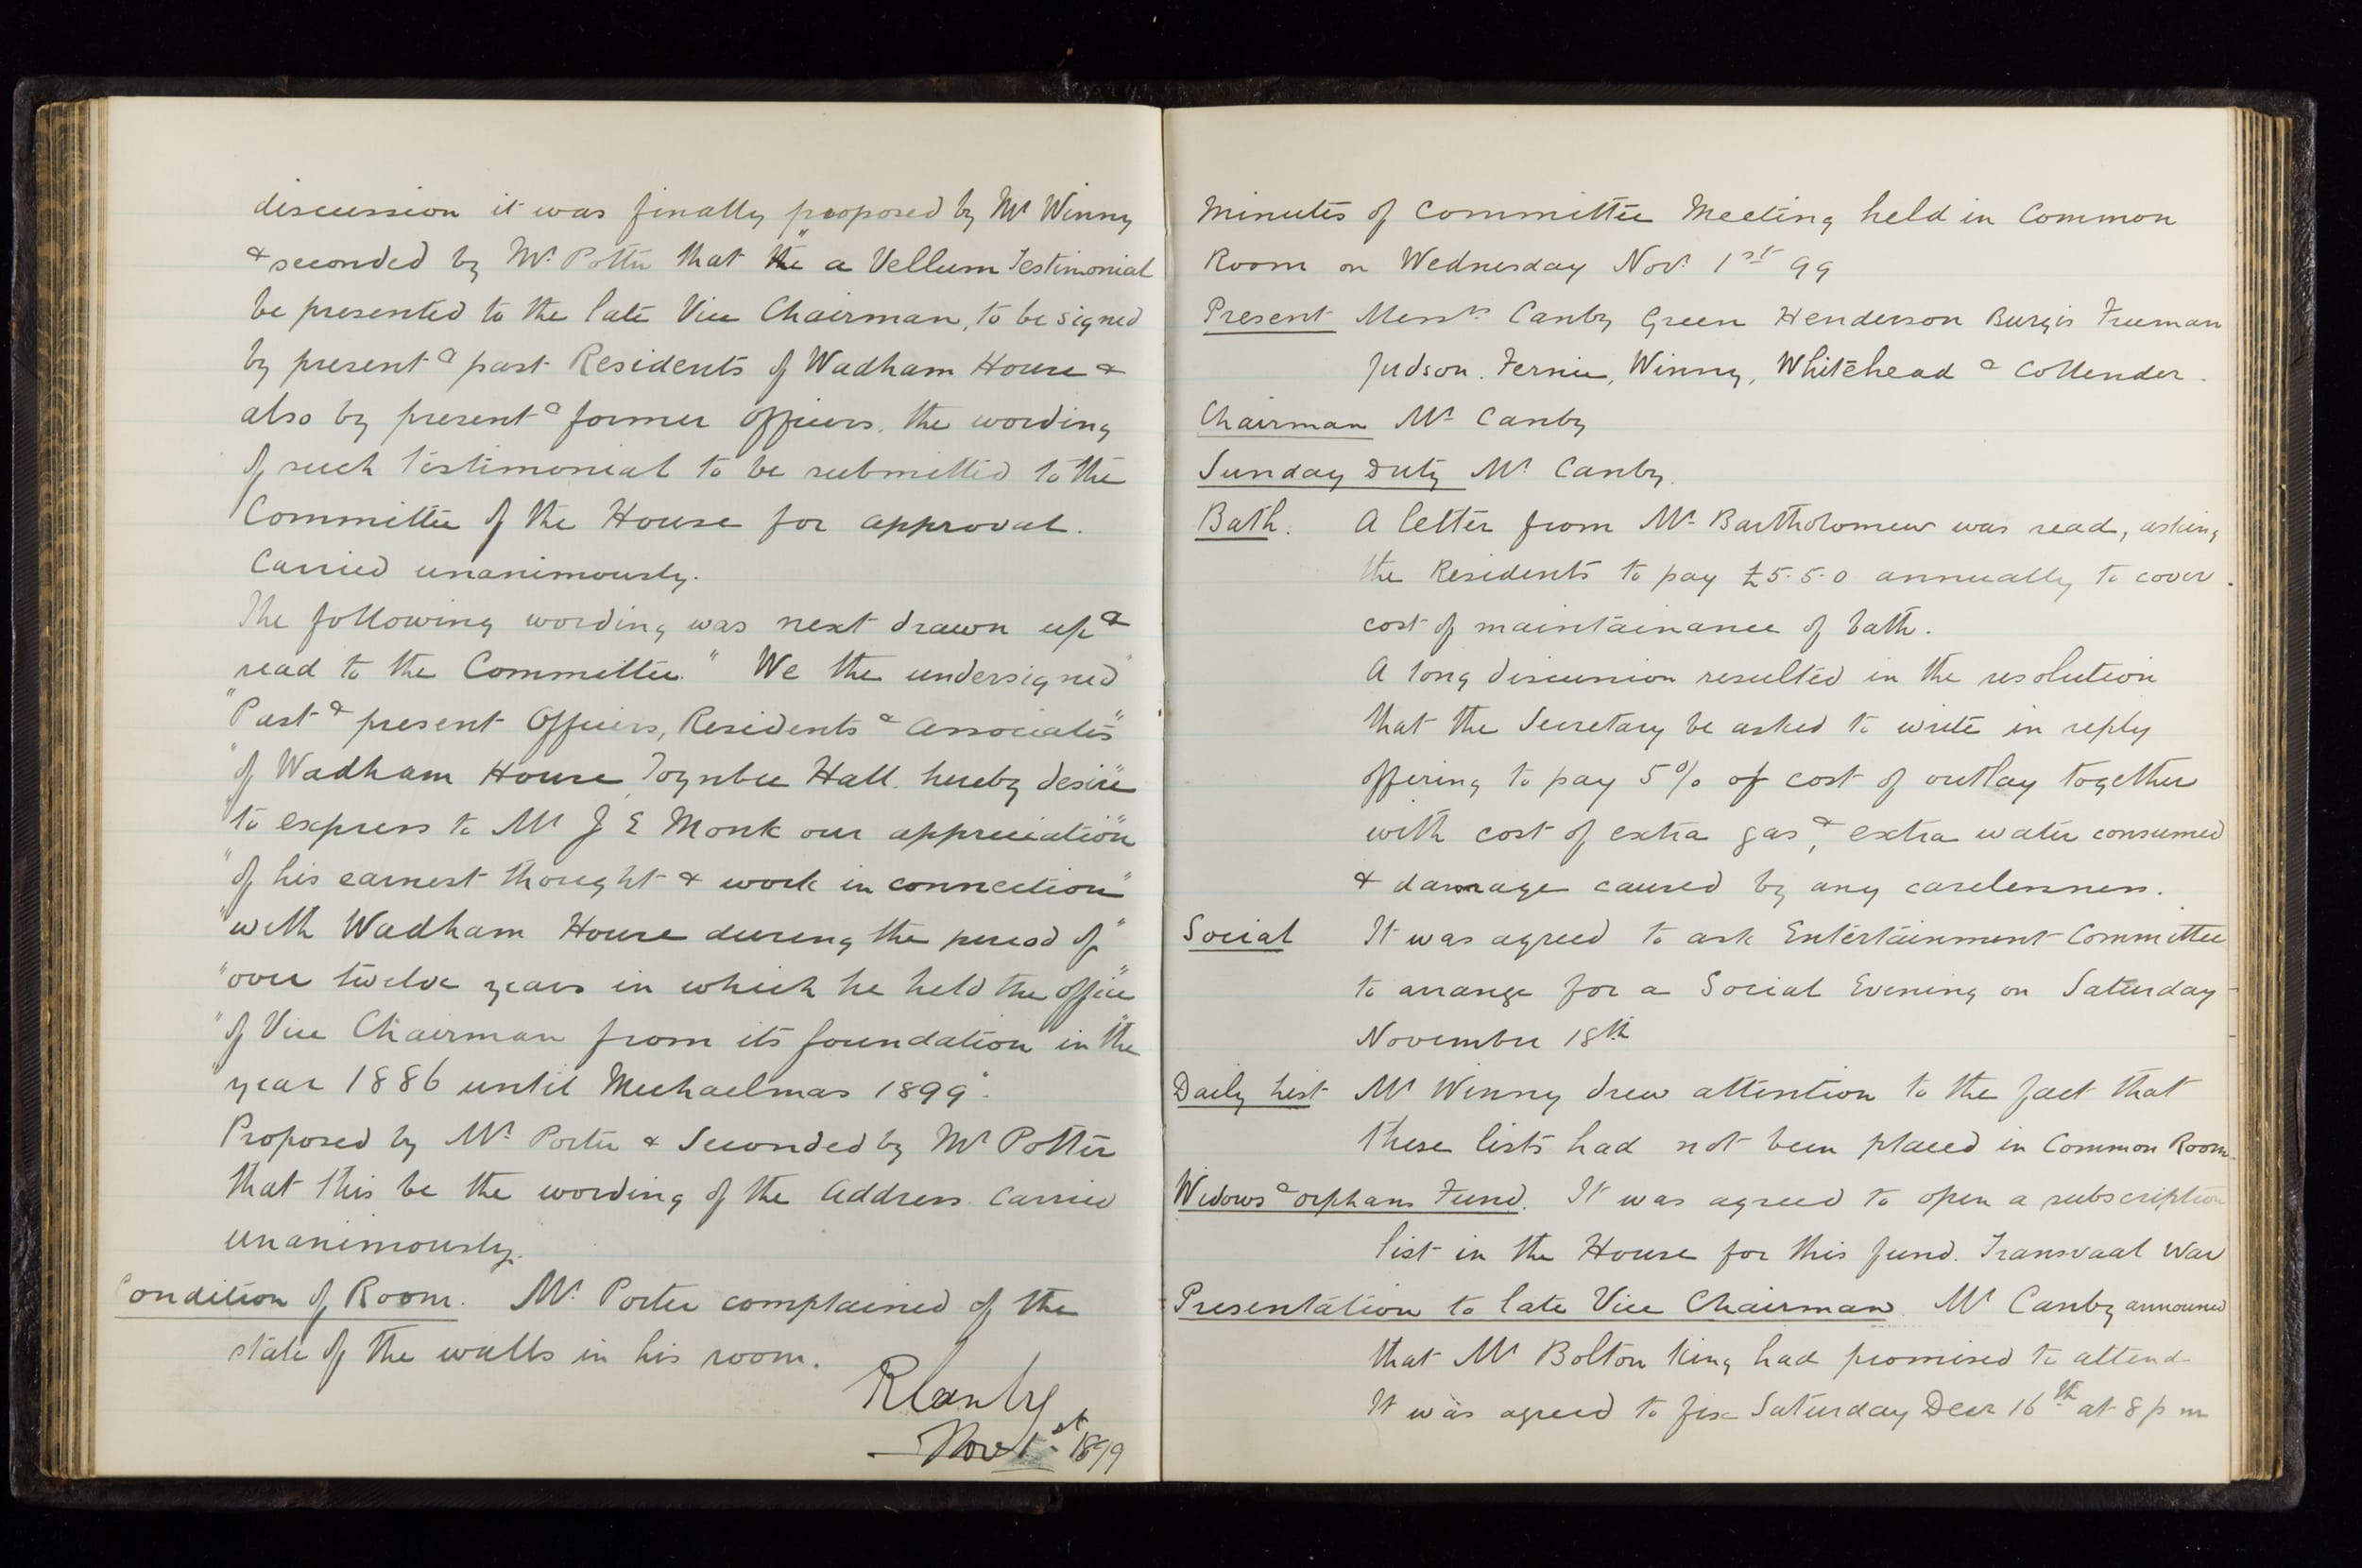 discussion it was finally proposed by Mr Winny
& seconded by Mr. Potter that the a Vellum Testimonial
be presented to the late Vice Chairman, to be signed
by present & past Residents of Wadham House &
also by present & former Officers, the wording
of such testimonial to be submitted to the
Committee of the House for approval.
Carried unanimously.
The following wording was next drawn up &
read to the Committee. "We the undersigned"
"Past & present Officers, Residents & Associates"
"of Wadham House, Toynbee Hall. hereby desire"
"to express to Mr J E Monk our appreciation"
"of his earnest thought & work in connection"
"with Wadham House during the period of"
"over twelve years in which he held the office"
"of Vice Chairman from its foundation in the"
"year 1886 until Michaelmas 1899".
Proposed by Mr. Porter & Seconded by Mr Potter
that this be the wording of the Address. Carried
unanimously.
Condition of Room. Mr. Porter complained of the
state of the walls in his room.
R Canby
Nov 1st 1899
Minutes of Committee Meeting held in Common
Room on Wednesday Nov. 1st 99
Present Messrs Canby Green Henderson Burgis Freeman
Judson. Fernie, Winny, Whitehead & Collender.
Chairman Mr Canby
Sunday Duty Mr. Canby.
Bath. A letter from Mr Bartholomew was read, asking
the Residents to pay £5.5.0 annually to cover
cost of maintainance of bath.
A long discussion resulted in the resolution
that the Secretary be asked to write in reply
offering to pay 5% of cost of outlay together
with cost of extra gas, & extra water consumed
& damage caused by any carelessness.
Social It was agreed to ask Entertainment Committee
to arrange for a Social Evening on Saturday
November 18th
Daily List Mr Winny drew attention to the fact that
these lists had not been placed in Common Room.
Widows & Orphans Fund. It was agreed to open a subscription
list in the House for this fund. Transvaal War
Presentation to late Vice Chairman. Mr Canby announced
that Mr Bolton King had promised to attend
It was agreed to fix Saturday Decr 16th at 8 p m